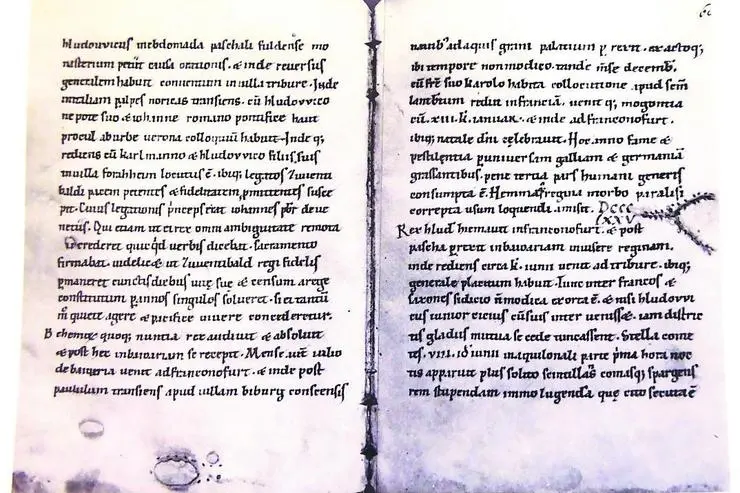 hludouuicus mebdomada paschali fuldense mo
nasterium petiit causa orationis. & inde reuersus
generalem habuit conuentum in uilla tribure. Inde
initaliam p alpes noricas transiens. cū hludouuico
nepote suo & iohanne romano pontifice haut
procul aburbe uerona colloquiū habuit. Inde q;
rediens cū karlmanno & hludouuico filiis suis
inuilla forahheim locutus ē. ibiq; legatos Zuuenti
baldi pacem petentes & fidelitatem pmittentes susce
pit. Cuius legationis pnceps erat iohannes pbr de ue
netiis. Qui etiam ut ei rex omni ambiguitate remota
crederet quicqd uerbis dicebat. sacramento
firmabat. uidelic& ut Zuuentibald regi fidelis
pmaneret cunctis diebus uitę suę & censum arege
constitutum p annos singulos solueret. si ei tantū
m quiete agere & pacifice uiuere concederetur.
Behemoꝝ quoq; nuntiaꝝ rex audiuit & absoluit
& post hęc inbauuariam se recepit. Mense uero iulio
de baiuaria uenit adfranconofurt. & inde post
paululum transiens apud uillam biburg conscensis
nauib; adaquis grani palatium prexit. exactoq;
ibi tempore nonmodico. tandē mse decemb.
cū frē suo karolo habita collocutione apud scm
lambtum rediit infranciā. uenit q; mogontia
cū. XIII. k. ianuar. & inde ad franconofurt.
ibiq; natale dni celebrauit. Hoc anno fame &
pestilentia p uniuersam galliam & germaniā
grassantibus. pene tertia pars humani generis
consumpta ē. Hemma regina morbo paralisi
correpta usum loquendi amisit. DCCC
LXXV
Rex hlud hiemauit infranconofurt. & post
pascha prexit inbauuariam inuisere reginam.
inde rediens circa k. iunii uenit ad tribure. ibiq;
generale placitum habuit. Tunc inter francos &
saxones seditio ñ modica exorta ē. & nisi hludouui
cus iunior cicius cū suis inter uenisset. iam districtis
gladiis mutua se cede truncassent. Stella come
tes. VIII. id iunii inaquilonali parte pma hora noc
tis apparuit plus solito scintillas comasq; spargens
rem stupendam immo lugendā. quę cito secuta ē